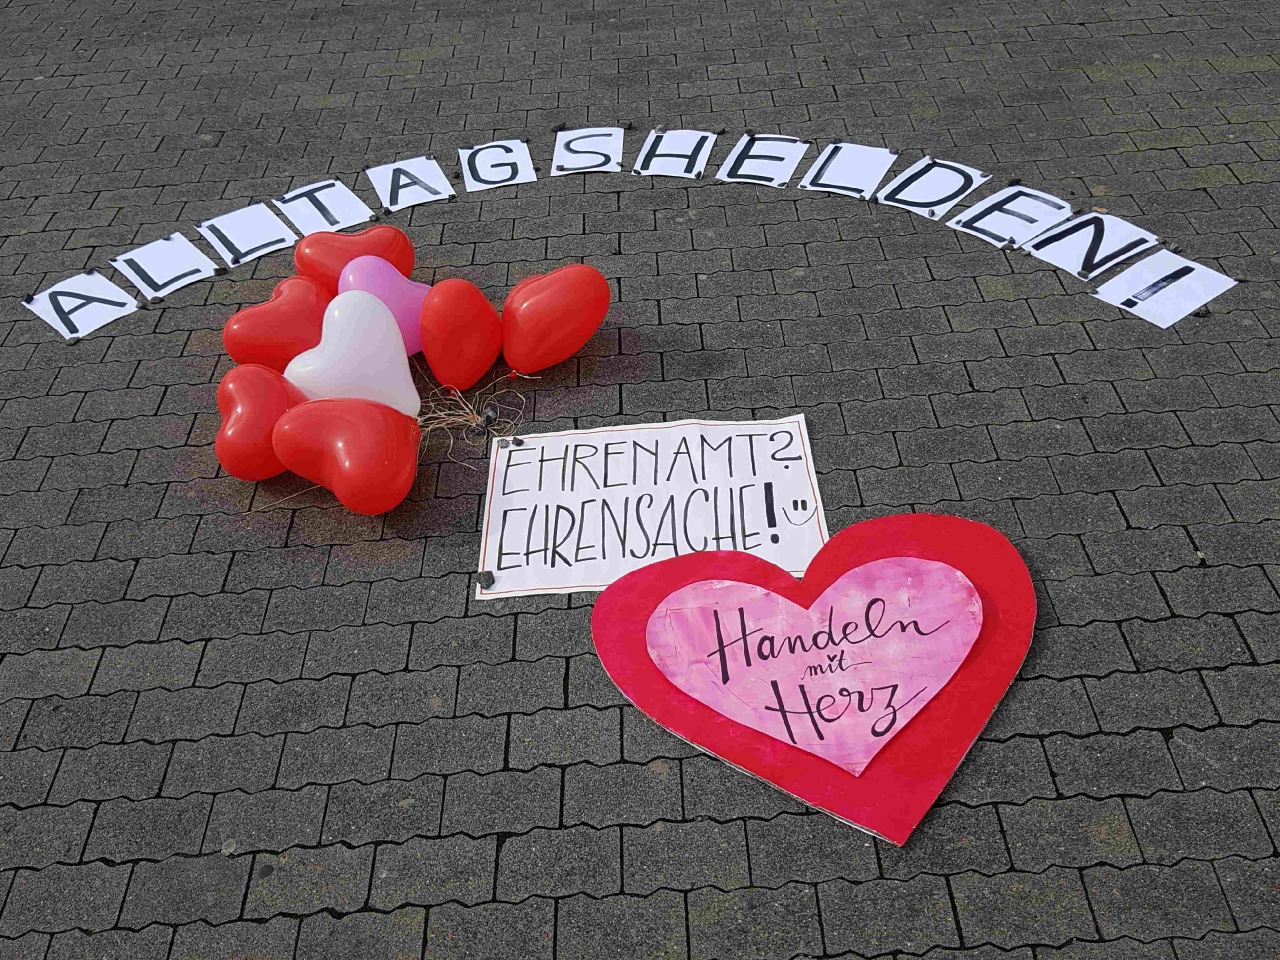 ALLTAGSHELDEN!
EHRENAMT?
EHRENSACHE!
Handeln
mit
Herz